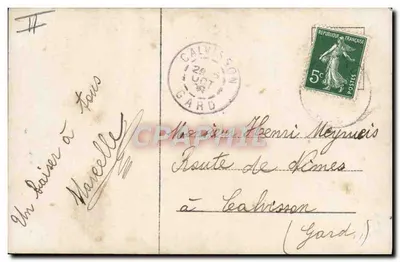 II
Un baiser à tous
Marcelle
CALVISSON
GARD
REPUBLIQUE FRANÇAISE
5c
POSTES
CPAPHIL.COM
Monsieur Henri Meyrueis
Route de Nîmes
à Calvisson
(Gard.)